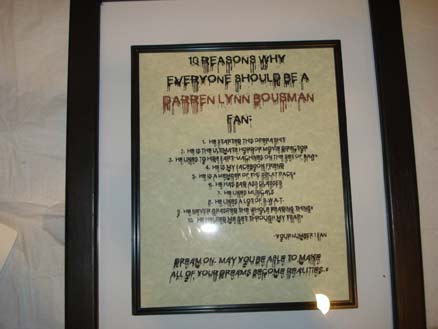 10 REASONS WHY
EVERYONE SHOULD BE A
DARREN LYNN BOUSMAN
FAN:
1. HE STARTED THE
2. HE IS THE ULTIMATE HORROR MOVIE DIRECTOR
3. HE LIKES TO MACHINES ON THE SET OF SAW
4. HE IS MY FACEBOOK FRIEND
5. HE IS A MEMBER OF THE SPLAT PACK
6. HE HAS BAD ASS GLASSES
7. HE LIKES MUSICALS
8. HE LIKES A LOT OF S.W.A.T.
9. HE NEVER THE WHOLE READING THING
10. HE HELPED ME GET THROUGH MY
-YOUR NUMBER 1 FAN
DREAM ON. MAY YOU BE ABLE TO MAKE
ALL OF YOUR DREAMS BECOME REALITIES.